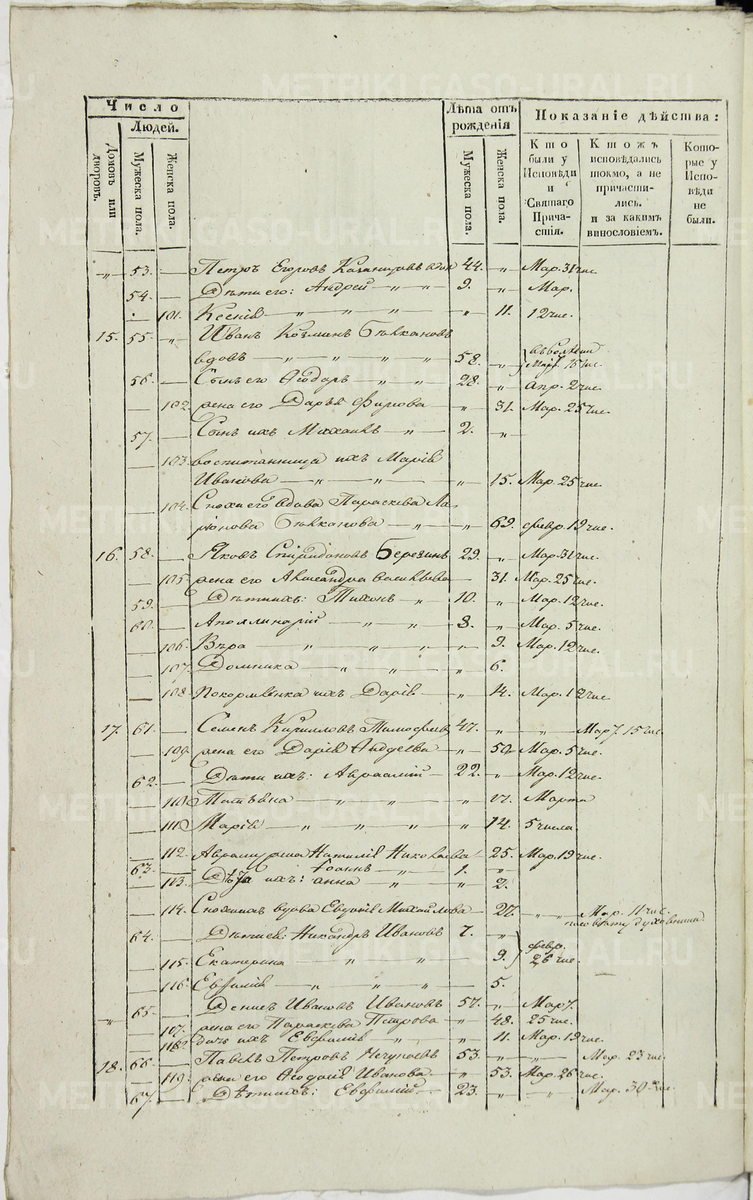 Число
Людей.
Домовъ или дворовъ.
Мужеска пола.
Женска пола.
Лѣта отъ рожденія
Мужеска пола.
Женска пола.
Показаніе дѣйства:
Кто были у Исповѣди и Святаго Причастія.
Ктожъ исповѣдались токмо, а не причастились. и за какимъ винословіемъ.
Которые у Исповѣди не были.
„ 53. — Петръ Егоровъ 44. „ Мар. 31 чис.
54. — Дѣти его: Андрей — „ „ 9. „ Мар.
— 101. Ксенія — „ „ „ „ 11. 12 чис.
15. 55. „ Иванъ Козминъ
вдовъ — „ „ „ „ 58. „ Март. 15 чис.
56. — Сынъ его Ѳеодоръ — „ „ 28. „ Апр. 2 чис.
— 102. жена его Дарья „ 31. Мар. 25 чис.
57. — Сынъ ихъ Михаилъ — „ 2. „
— 103. воспитанница ихъ Марія
Иванова — „ „ „ „ 15. Мар. 25 чис.
— 104. Сноха его вдова Параскева
— „ „ 69. февр. 19 чис.
16. 58. — Яковъ Спиридоновъ Березинъ 29. „ Мар. 31 чис.
— 105. жена его Александра Васильева — 31. Мар. 25 чис.
59. — Дѣти ихъ: Тихонъ — „ 10. „ Мар. 12 чис.
60. — Аполлинарій — „ „ 8. „ Мар. 5 чис.
— 106. Вѣра „ „ „ „ 9. Мар. 12 чис.
— 107. Домника — „ „ „ 6.
— 108. ихъ Дарія — „ 14. Мар. 12 чис.
17. 61. — Семенъ Кирилловъ Тимофеевъ 47. „ „ Март. 15 чис.
— 109. жена его Дарія Авдеева — „ 50. Мар. 5 чис.
62. — Дѣти ихъ: Авраамій — 22. „ Мар. 12 чис.
— 110. Татьяна — „ „ „ 17. Марта
— 111. Марія — „ „ „ „ 14. 5 числа
— 112. жена Наталія Николаева — 25. Мар. 19 чис.
63. — Дѣти ихъ: Іоаннъ — „ 1. „
— 113. Анна „ „ 2.
— 114. вдова Евдокія Михайлова — 27. „ „ Мар. 11 чис.
по совѣту духовника
64. — Никандръ Ивановъ 7. „ февр.
— 115. Екатерина „ „ „ 9. 26 чис.
— 116. „ „ „ 5.
„ 65. — Денисъ Ивановъ Ивановъ 57. „ Март.
— 117. жена его Параскева Петрова „ 48. 25 чис.
— 118. дочь ихъ Евфимія „ „ 11. Мар. 19 чис.
18. 66. — Павелъ Петровъ 53. „ „ Мар. 23 чис.
— 119. жена его Ѳеодосія Иванова — „ 53. Мар. 26 чис.
67. — Дѣти ихъ: Евфимій — 23. „ „ Мар. 30 чис.
METRIKI.GASO-URAL.RU